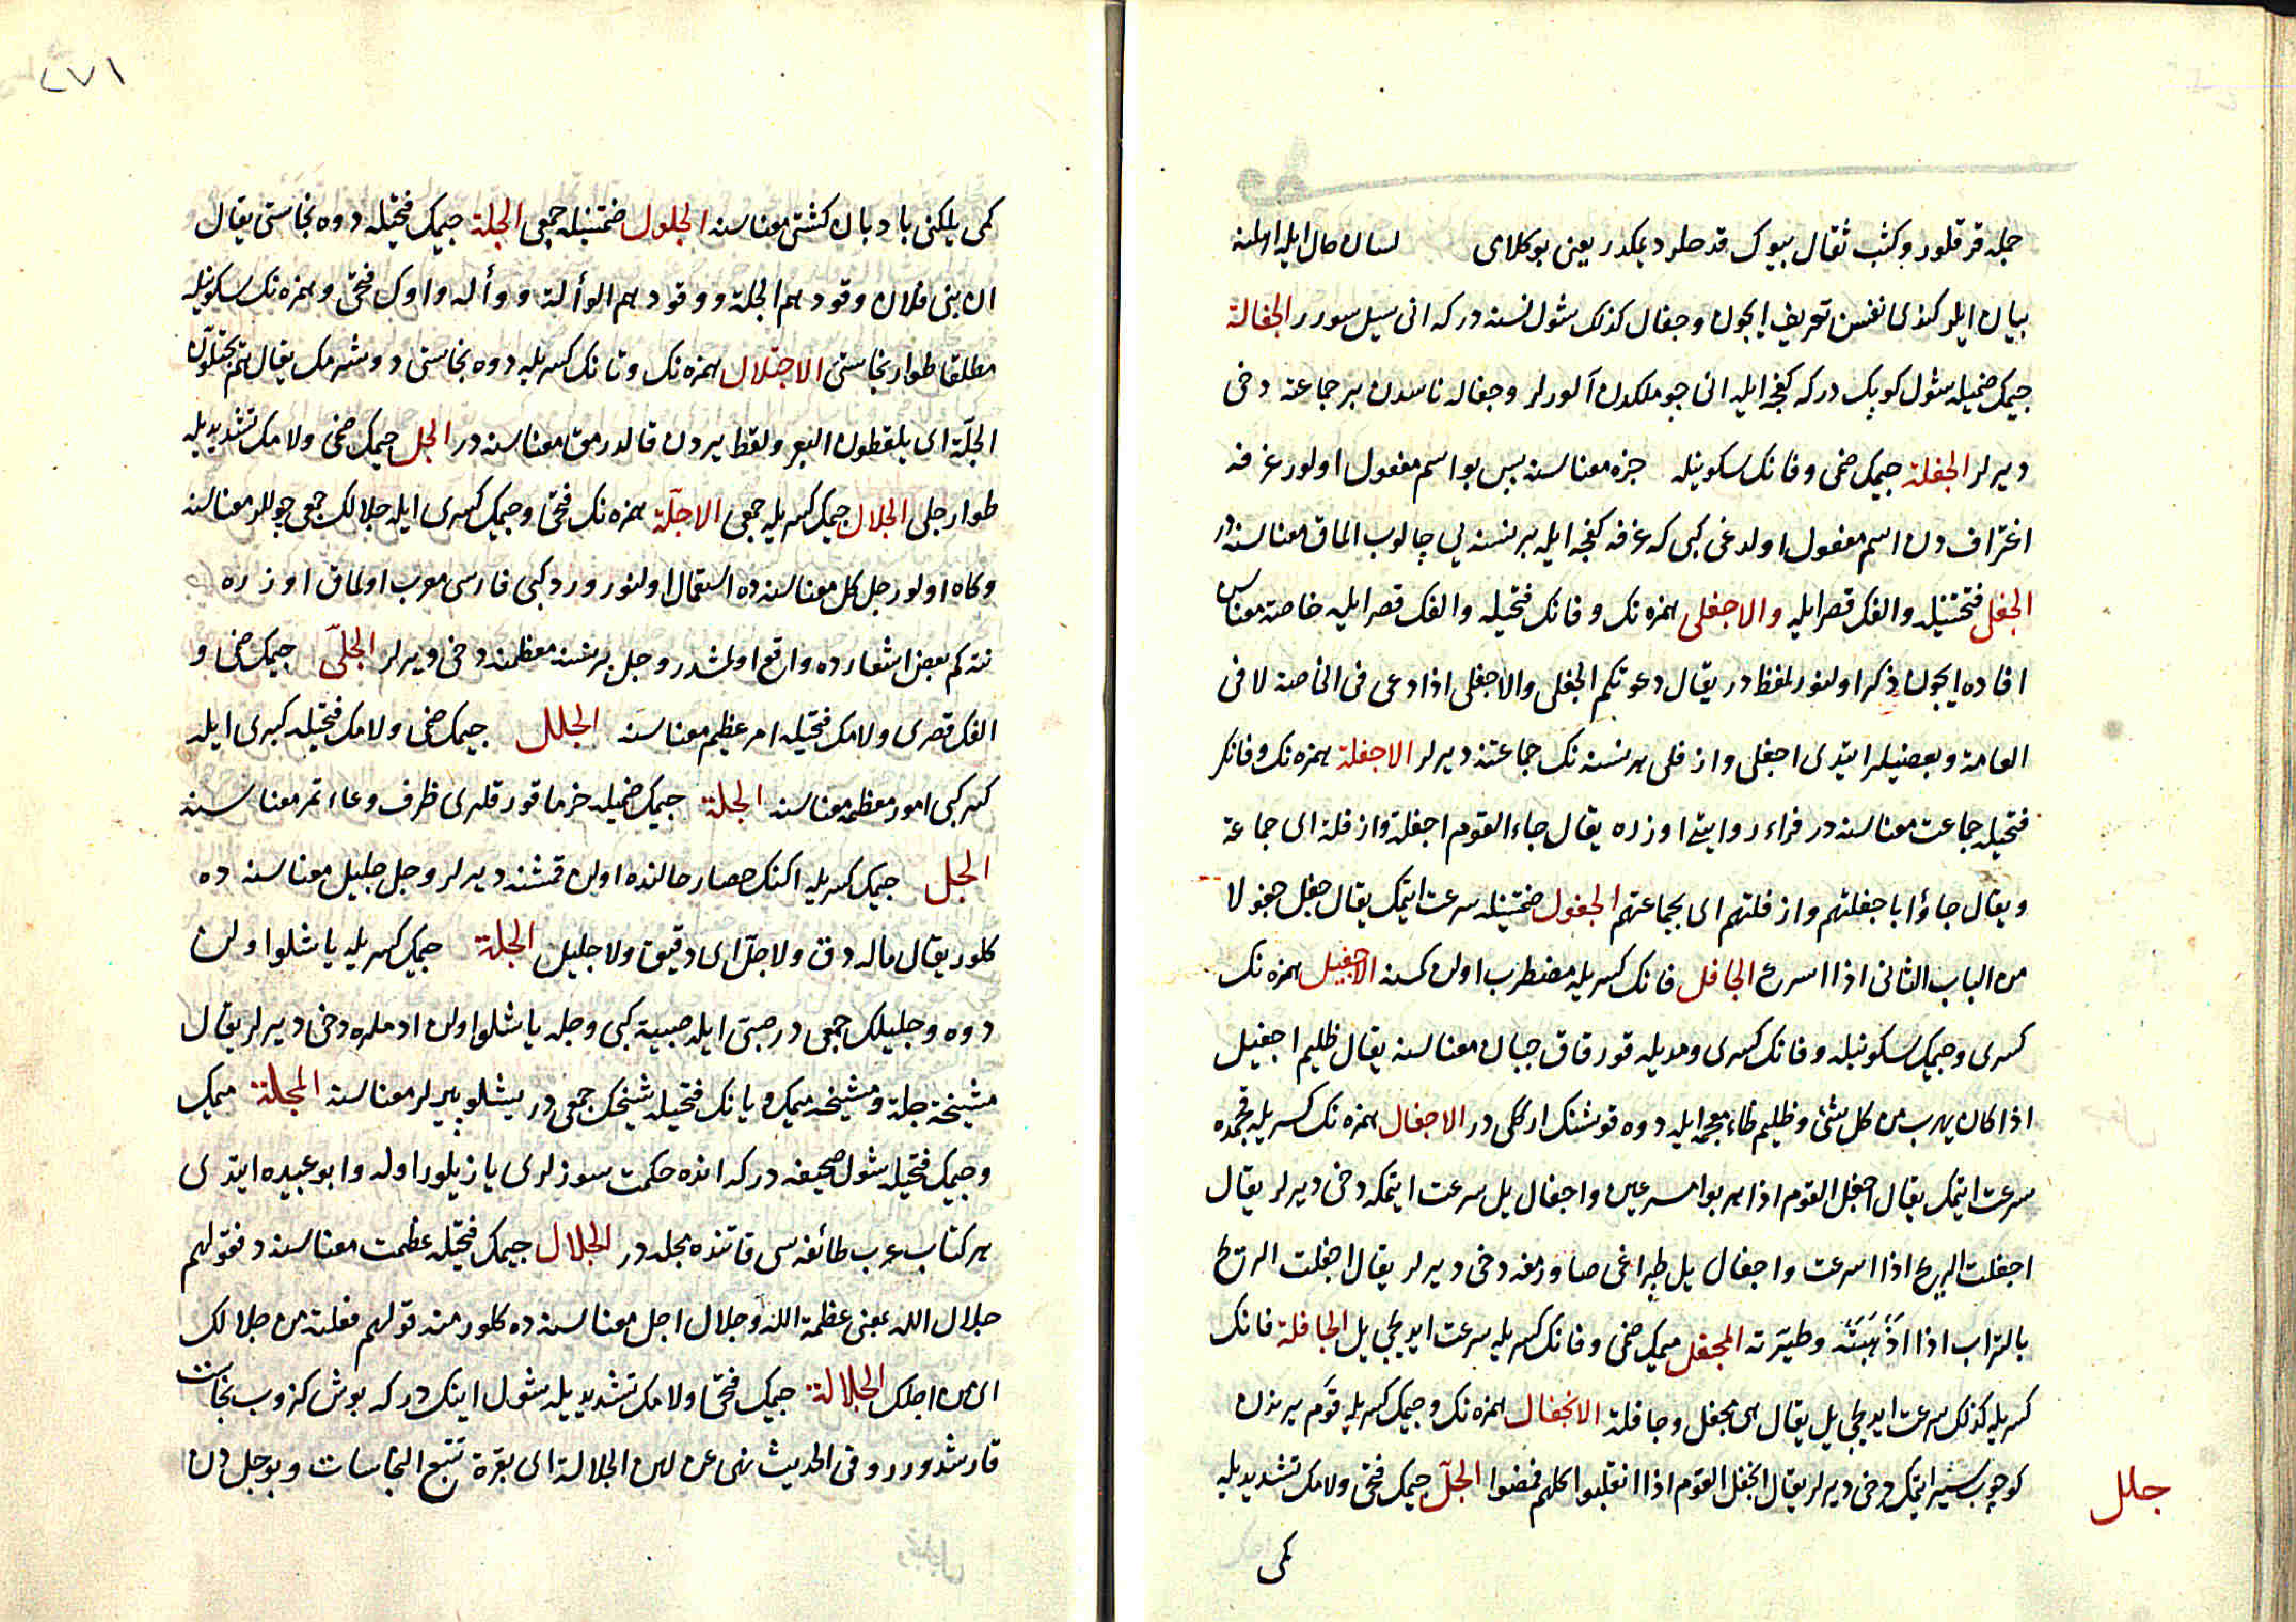 جله قر قلور وكثب ثقال بيوك قدحلر ديمكدر يعنى بو كلامى لسان حال ايله اهلنه
بيان ايلر كندى نفسن تعريف ايچون وجفال كذلك شول نسنه در كه انى سيل سورر الجفالة
جيمك ضميله شول كوپك در كه كفچه ايله انى چوملكدن آلورلر وجفاله ناسدن بر جماعته دخى
ديرلر الجفلة جيمك ضمى وفانك سكونيله جزه معناسنه پس بو اسم مفعول اولور غرفه
اغتراف دن اسم مفعول اولدغى كبى كه غرفه كفچه ايله بر نسنه يى چالوب الماق معناسنه در
الجفلى فتحتينله والفك قصر ايله والاجفلى همزه نك وفانك فتحيله والفك قصر ايله خاصة معناسن
افاده ايچون ذكر اولنور لفظ در يقال دعوتكم الجفلى والاجفلى اذا دعى فى الخاصة لا فى
العامة وبعضيلر ايتدى اجفلى وازفلى هر نسنه نك جماعتنه ديرلر الاجفلة همزه نك وفانك
فتحيله جماعت معناسنه در فراء روايتى اوزره يقال جاء القوم اجفلة وازفلة اى جماعة
ويقال جاؤا باجفلتهم وازفلتهم اى بجماعتهم الجفول ضمتينله سرعت ايتمك يقال جفل جفولا
من الباب الثانى اذا اسرع الجافل فانك كسريله مضطرب اولن كمسنه الاجفيل همزه نك
كسرى وجيمك سكونيله وفانك كسرى ومديله قورقاق جبان معناسنه يقال ظليم اجفيل
اذا كان يهرب من كل شئ وظليم ظاء معجمه ايله دوه قوشنك اركى در الاجفال همزه نك كسريله قچمده
سرعت ايتمك يقال اجفل القوم اذا هربوا مسرعين واجفال يل سرعت ايتمكه دخى ديرلر يقال
اجفلت الريح اذا اسرعت واجفال يل طپراغى صاورمغه دخى ديرلر يقال اجفلت الريح
بالتراب اذا اذهبته وطيرته المجفل ميمك ضمى وفانك كسريله سرعت ايديجى يل الجافلة فانك
كسريله كذلك سرعت ايديجى يل يقال هى مجفل وجافلة الانجفال همزه نك وجيمك كسريله قوم يرندن
كوچوب سير ايتمك دخى ديرلر يقال انجفل القوم اذا انقلبوا كلهم فمضوا الجل جيمك فتحى ولامك تشديديله
جلل
كمى
٢٧١
كمى يلكنى بادبان كشتى معناسنه الجلول ضمتينله جمعى الجلة جيمك فتحيله دوه نجاستى يقال
ان بنى فلان وقودهم الجلة ووقودهم الوألة ووأله واوك فتحى وهمزه نك سكونيله
مطلقا طوار نجاستى الاجتلال همزه نك وتانك كسريله دوه نجاستى دوشرمك يقال هم يجتلون
الجلة اى يلقطون البعر ولقط يردن قالدرمق معناسنه در الجل جيمك ضمى ولامك تشديديله
طوار جلى الجلال جيمك كسريله جمعى الاجلة همزه نك فتحى وجيمك كسرى ايله جلالك جمعى چوللر معناسنه
وكاه اولور جل كل معناسنده استعمال اولنور ورد كبى فارسى معرب اولماق اوزره
نته كم بعض اشعارده واقع اولمشدر وجل بر نسنه معظمنه دخى ديرلر الجلى جيمك ضمى و
الفك قصرى ولامك فتحيله امر عظيم معناسنه الجلل جيمك ضمى ولامك فتحيله كبرى ايله
كبر كبى امور معظمه معناسنه الجلة جيمك ضميله خرما قورقلرى ظرف وعاء تمر معناسنه
الجل جيمك كسريله اكنك حصار حالنده اولن قمشنه ديرلر وجل جليل معناسنه ده
كلور يقال ماله دق ولا جل اى دقيق ولا جليل الجلة جيمك كسريله ياشلو اولن
دوه وجليلك جمعى در صبى ايله صبية كبى وجله ياشلو اولن ادملره دخى ديرلر يقال
مشيخة جلة ومشيخه ميمك ويانك فتحيله شيخك جمعى در ياشلو پيرلر معناسنه المجلة ميمك
وجيمك فتحيله شول صحيفه در كه انده حكمت سوزلرى يازيلور اوله وابو عبيده ايتدى
هر كتاب عرب طائفه سى قاتنده مجله در الجلال جيمك فتحيله عظمت معناسنه در فقولهم
جلال الله بمعنى عظمة الله وجلال اجل معناسنه ده كلور منه قولهم فعلته من جلالك
اى من اجلك الجلالة جيمك فتحى ولامك تشديديله شول اينك در كه بوش كزوب نجاست
قارشدورر وفى الحديث نهى عن لبن الجلالة اى بقرة تتبع النجاسات وبو جل دن